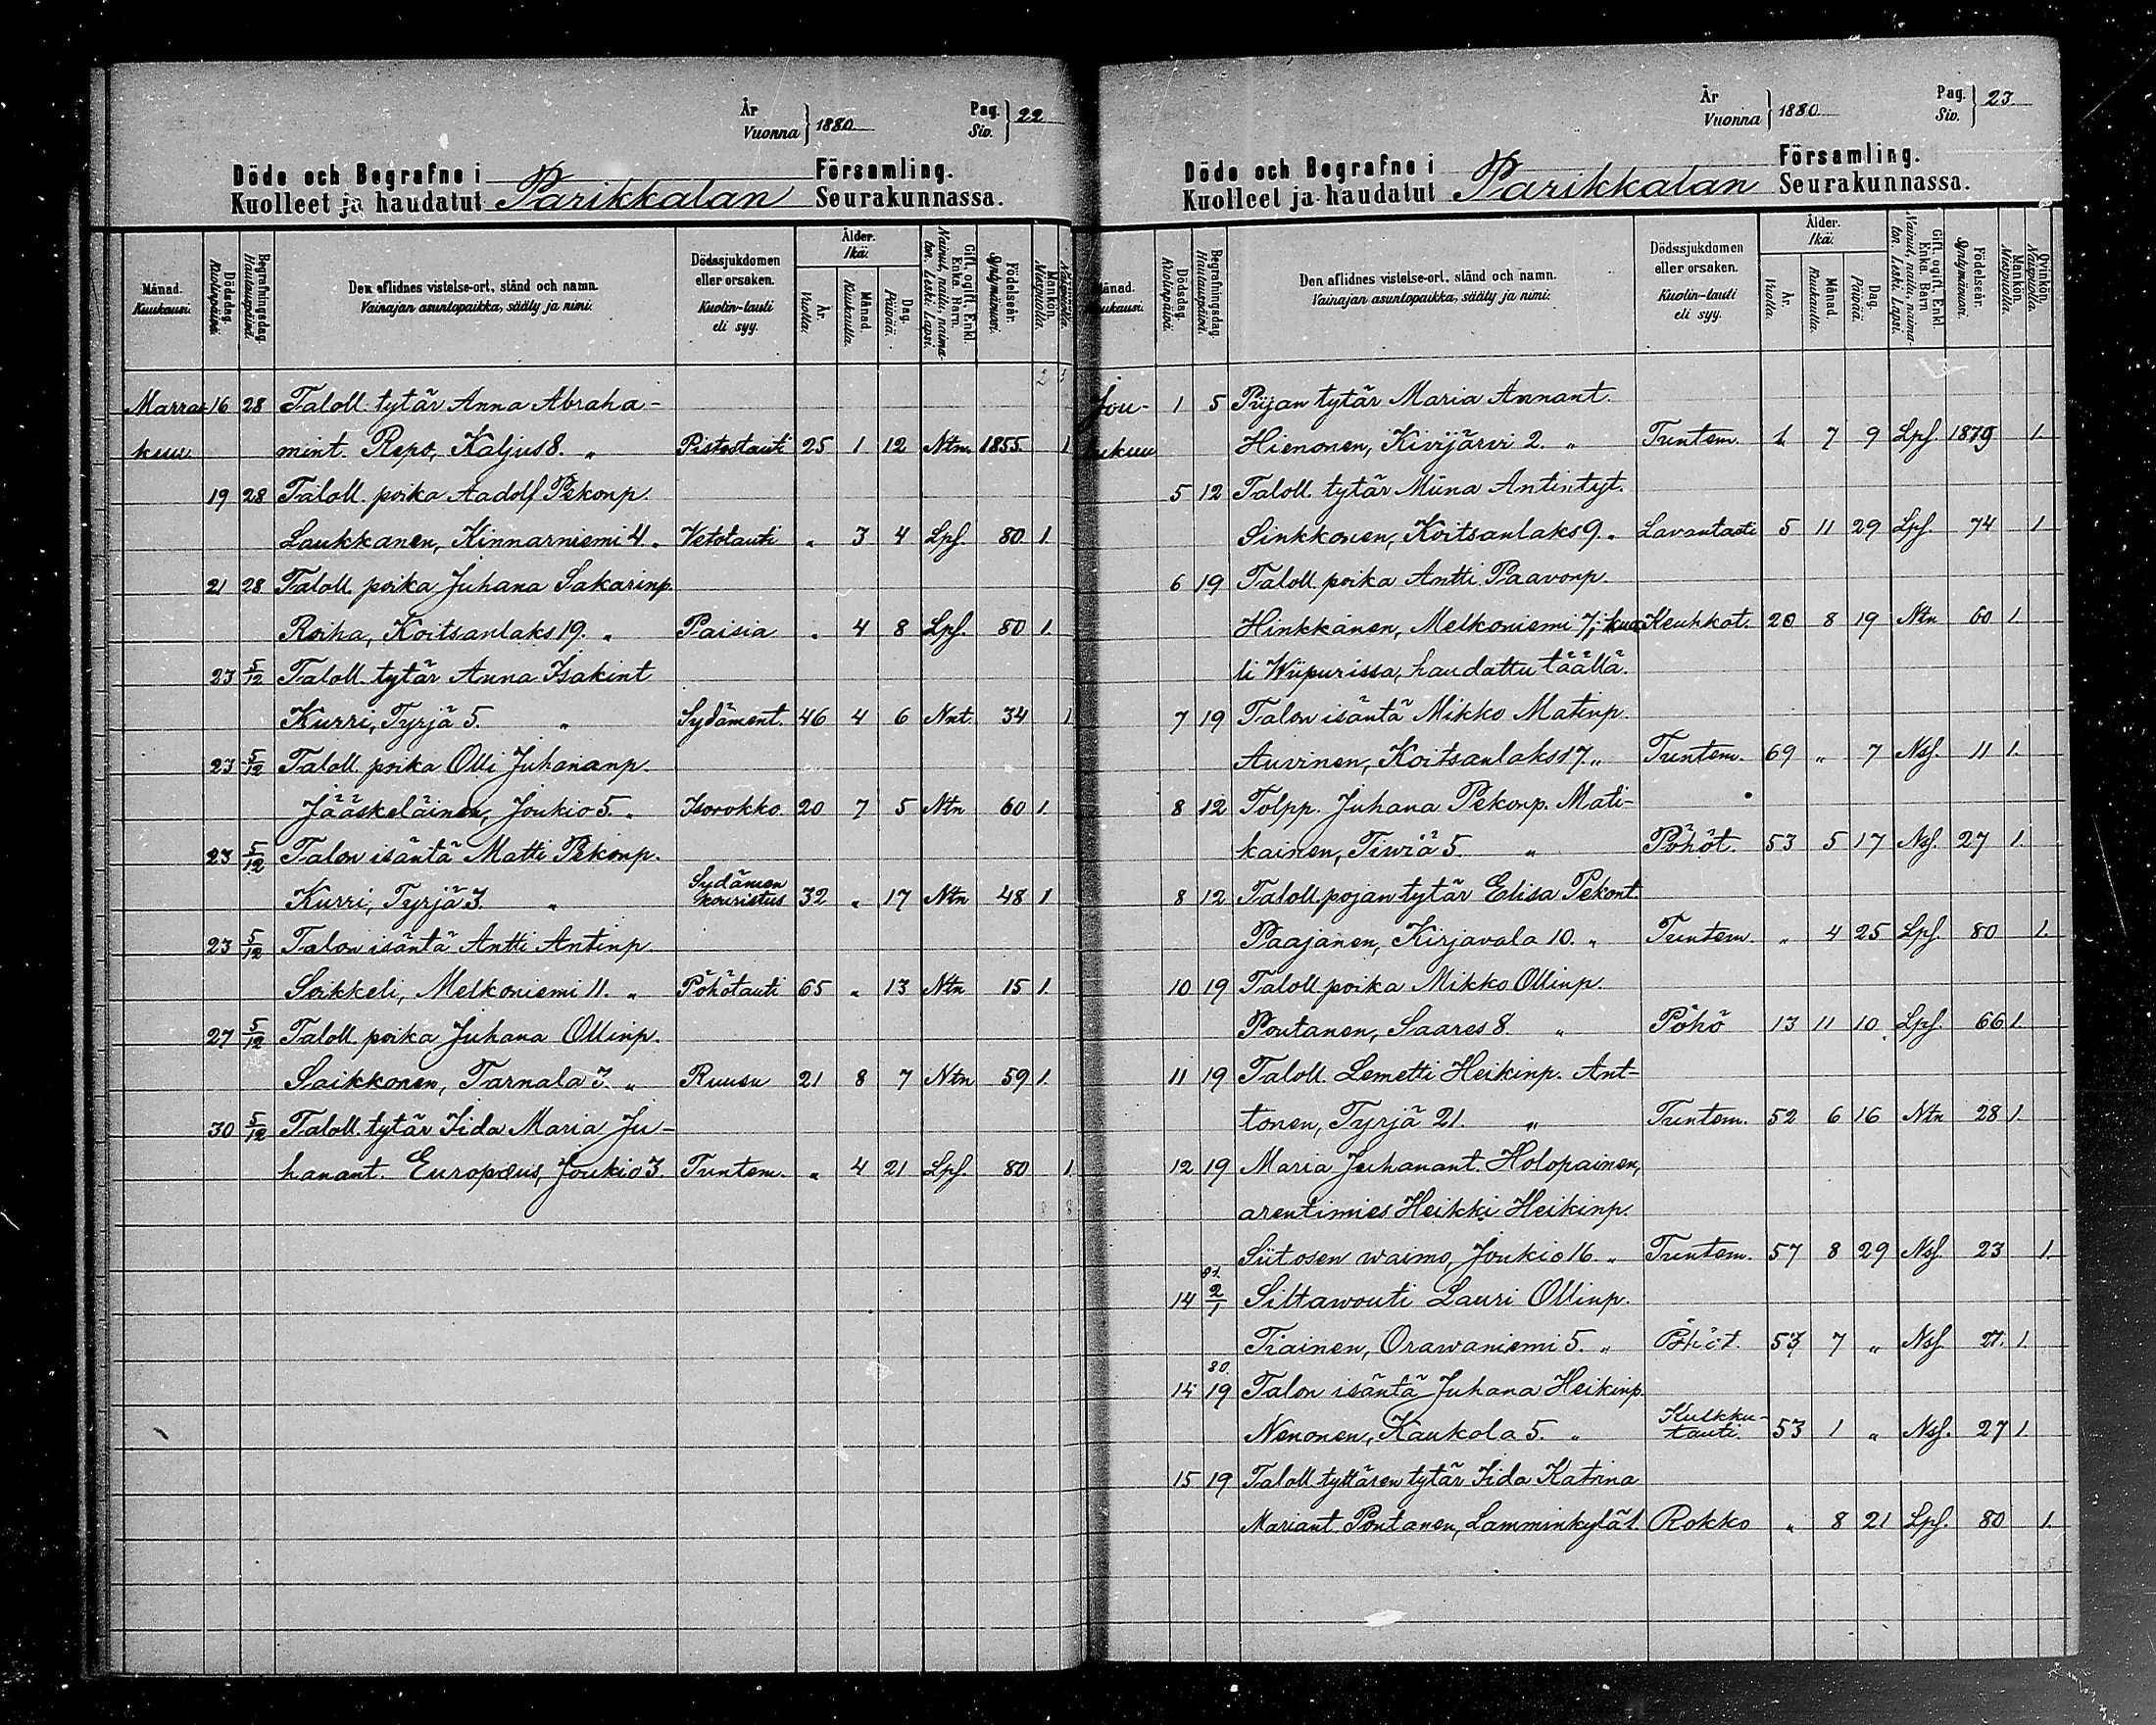 År Vuonna } 1880. Pag. Siv. } 22
Döde och Begrafne i Församling.
Kuolleet ja haudatut Parikkalan Seurakunnassa.
Månad. Kuukausi. Dödsdag. Kuolinpäivä. Begrafningsdag. Hautauspäivä. Den aflidnes vistelse-ort, stånd och namn. Vainajan asuntopaikka, sääty ja nimi. Dödssjukdomen eller orsaken. Kuolin-tauti eli syy. Ålder. Ikä. År. Vuotta. Månad. Kuukautta. Dag. Päivää. Gift, ogift, Enkl. Enka, Barn. Nainut, naitu, naimaton. Leski. Lapsi. Födelseår. Syntymävuosi. Mankön. Miespuolia.
Marras 16 28 Taloll. tytär Anna Abraha-
kuu. mint. Repo, Kaljus 8. " Pistostauti 25 1 12 Ntn. 1855. 1
19 28 Taloll. poika Aadolf Pekonp.
Laukkanen, Kinnarniemi 4. " Vetotauti " 3 4 Lps. 80. 1.
21 28 Taloll. poika Juhana Sakarinp.
Roiha, Koitsanlaks 19. " Paisia " 4 8 Lps. 80 1.
23 5/12 Taloll. tytär Anna Isakint
Kurri, Tyrjä 5. " Sydäment. 46 4 6 Nnt. 34 1
23 5/12 Taloll. poika Olli Juhananp.
Jääskeläinen, Joukio 5. " Isorokko 20 7 5 Ntn 60 1.
23 5/12 Talon isäntä Matti Pekonp.
Kurri, Tyrjä 3. " Sydämen kouristus 32 " 17 Ntn 48 1
23 5/12 Talon isäntä Antti Antinp.
Soikkeli, Melkoniemi 11. " Pöhötauti 65 " 13 Ntn 15 1.
27 5/12 Taloll. poika Juhana Ollinp.
Saikkonen, Tarnala 3. " Ruusu 21 8 7 Ntn 59 1.
30 5/12 Taloll. tytär Iida Maria Ju-
hanant. Europæus, Joukio 3. Tuntem. " 4 21 Lps. 80 1.
År Vuonna } 1880. Pag. Siv. } 23
Döde och Begrafne i Församling.
Kuolleet ja haudatut Parikkalan Seurakunnassa.
Månad. Kuukausi. Dödsdag. Kuolinpäivä. Begrafningsdag. Hautauspäivä. Den aflidnes vistelse-ort, stånd och namn. Vainajan asuntopaikka, sääty ja nimi. Dödssjukdomen eller orsaken. Kuolin-tauti eli syy. Ålder. Ikä. År. Vuotta. Månad. Kuukautta. Dag. Päivää. Gift, ogift, Enkl. Enka, Barn Nainut, naitu, naimaton. Leski. Lapsi. Födelseår. Syntymävuosi. Mankön. Miespuolia. Qvinkön. Naispuolia.
Jou- 1 5 Piijan tytär Maria Annant.
lukuu Hienonen, Kivijärvi 2. " Tuntem. 1. 7 9 Lps. 1879 1.
5 12 Taloll. tytär Miina Antintyt.
Sinkkonen, Koitsanlaks 9. " Lavantauti 5 11 29 Lps. 74 1
6 19 Taloll. poika Antti Paavonp.
Hinkkanen, Melkoniemi 7; kuo- Keuhkot. 20 8 19 Ntn 60 1.
li Wiipurissa, haudattu täällä.
7 19 Talon isäntä Mikko Matinp.
Auvinen, Koitsanlaks 17. " Tuntem. 69 " 7 Nsf. 11 1.
8 12 Tolpp. Juhana Pekonp. Mati-
kainen, Tiwiä 5. " Pöhöt. 53 5 17 Nsf. 27 1.
8 12 Taloll. pojan tytär Elisa Pekont.
Paajanen, Kirjavala 10. " Tuntem. " 4 25 Lps. 80 1.
10 19 Taloll. poika Mikko Ollinp.
Poutanen, Saares 8. " Pöhö 13 11 10 Lps. 66 1.
11 19 Taloll. Lemetti Heikinp. Ant-
tonen, Tyrjä 21. " Tuntem. 52 6 16 Ntn 28 1.
12 19 Maria Juhanant. Holopainen,
arentimies Heikki Heikinp.
Siitosen waimo, Joukio 16. " Tuntem. 57 8 29 Nsf. 23 1.
14 81. 2/1 Siltawouti Lauri Ollinp.
Tiainen, Orawaniemi 5. " Pöhöt. 53 7 " Nsf. 27. 1.
14 80. 19 Talon isäntä Juhana Heikinp.
Nenonen, Kaukola 5. " Kulkku-tauti. 53 1 " Nsf. 27 1
15 19 Taloll. tyttären tytär Iida Katrina
Mariant. Pontanen, Lamminkylä 1. Rokko " 8 21 Lps. 80 1.